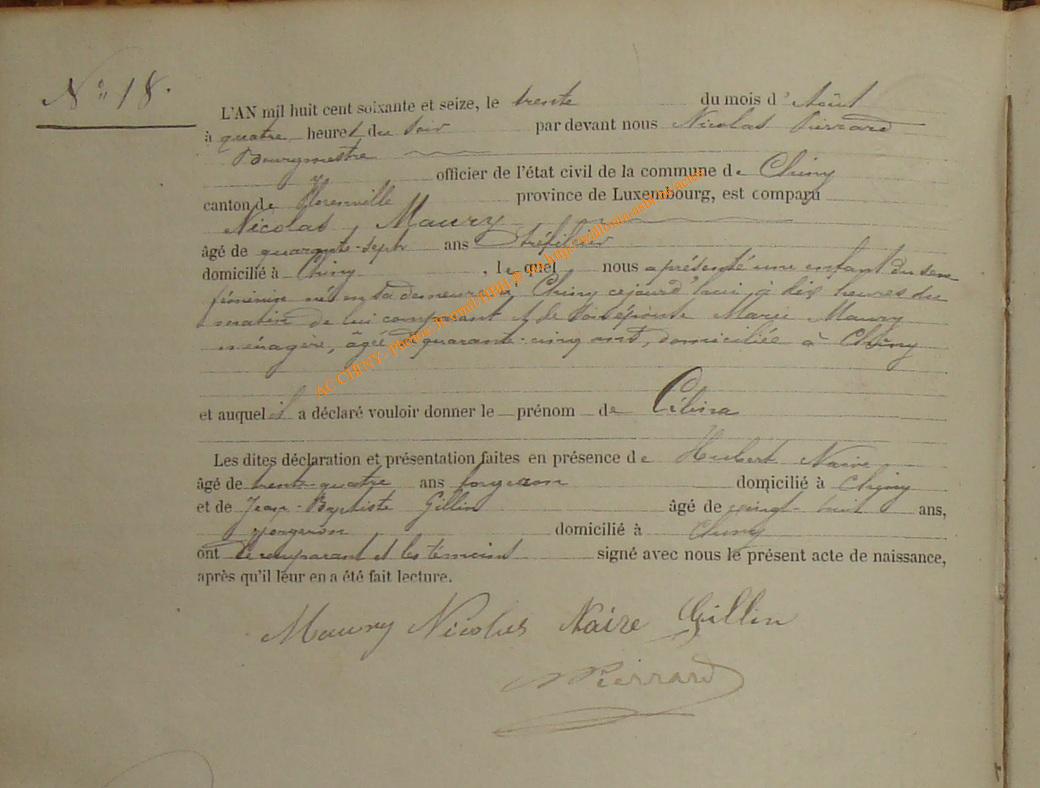 N° 18.
L'AN mil huit cent soixante et seize, le trente du mois d'Août
à quatre heures du soir par devant nous Nicolas Pierrard
Bourgmestre
officier de l'état civil de la commune de Chiny
canton de Florenville province de Luxembourg, est comparu
Nicolas Maury
âgé de quarante-sept ans Tréfileur
domicilié à Chiny, lequel nous a présenté une enfant du sexe
féminin né en sa demeure à Chiny cejourd'hui à dix heures du
matin de lui comparant & de son épouse Marie Maury
ménagère, âgée de quarante-cinq ans, domiciliée à Chiny
et auquel il a déclaré vouloir donner le prénom de Célina
Les dites déclaration et présentation faites en présence de Hubert Naire
âgé de trente-quatre ans forgeron domicilié à Chiny
et de Jean-Baptiste Gillin âgé de vingt-huit ans,
forgeron domicilié à Chiny
ont le comparant et les témoins signé avec nous le présent acte de naissance,
après qu'il leur en a été fait lecture.
Maury Nicolas Naire Gillin
N Pierrard
AC CHINY - photos